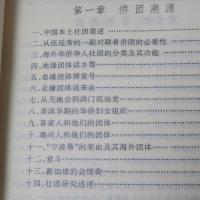 第一章 侨团溯源
一.中国本土社团简述
二.从伍廷芳的一副对联看侨团的必要性
三.海外华侨华人社团的分类及其功能
四.地缘团体话乡帮
五.血缘团体聚宗亲
六.业缘团体说来由
七.从天地会到洪门民治党
八.美国早期的华侨妇女组织
九.客家人和他们的团体
十.潮州人和他们的团体
十一."宁波帮"的来由及其海外团体
十二.堂斗
十三.新加坡的会馆街
十四.社团研究述评